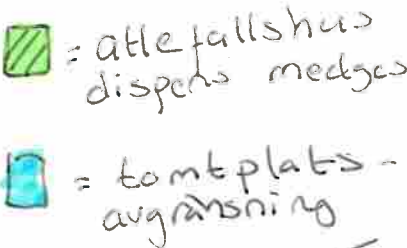 = attefallshus
dispens medges
= tomtplats-
avgränsning